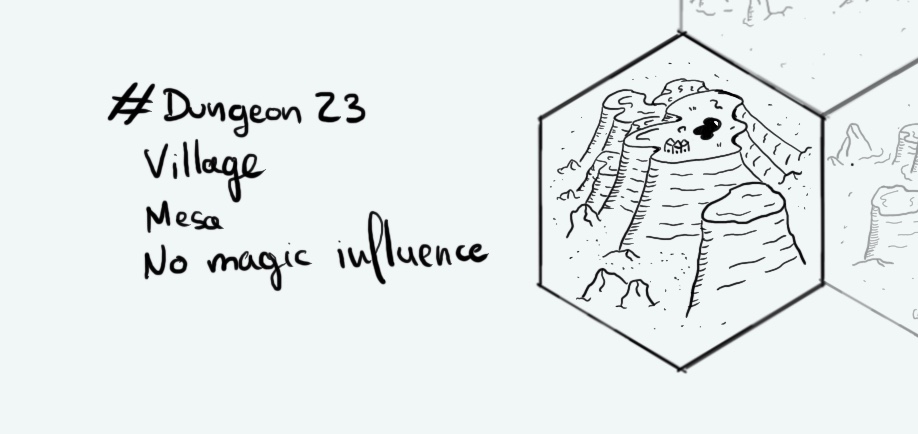 # Dungeon 23
Village
Mesa
No magic influence